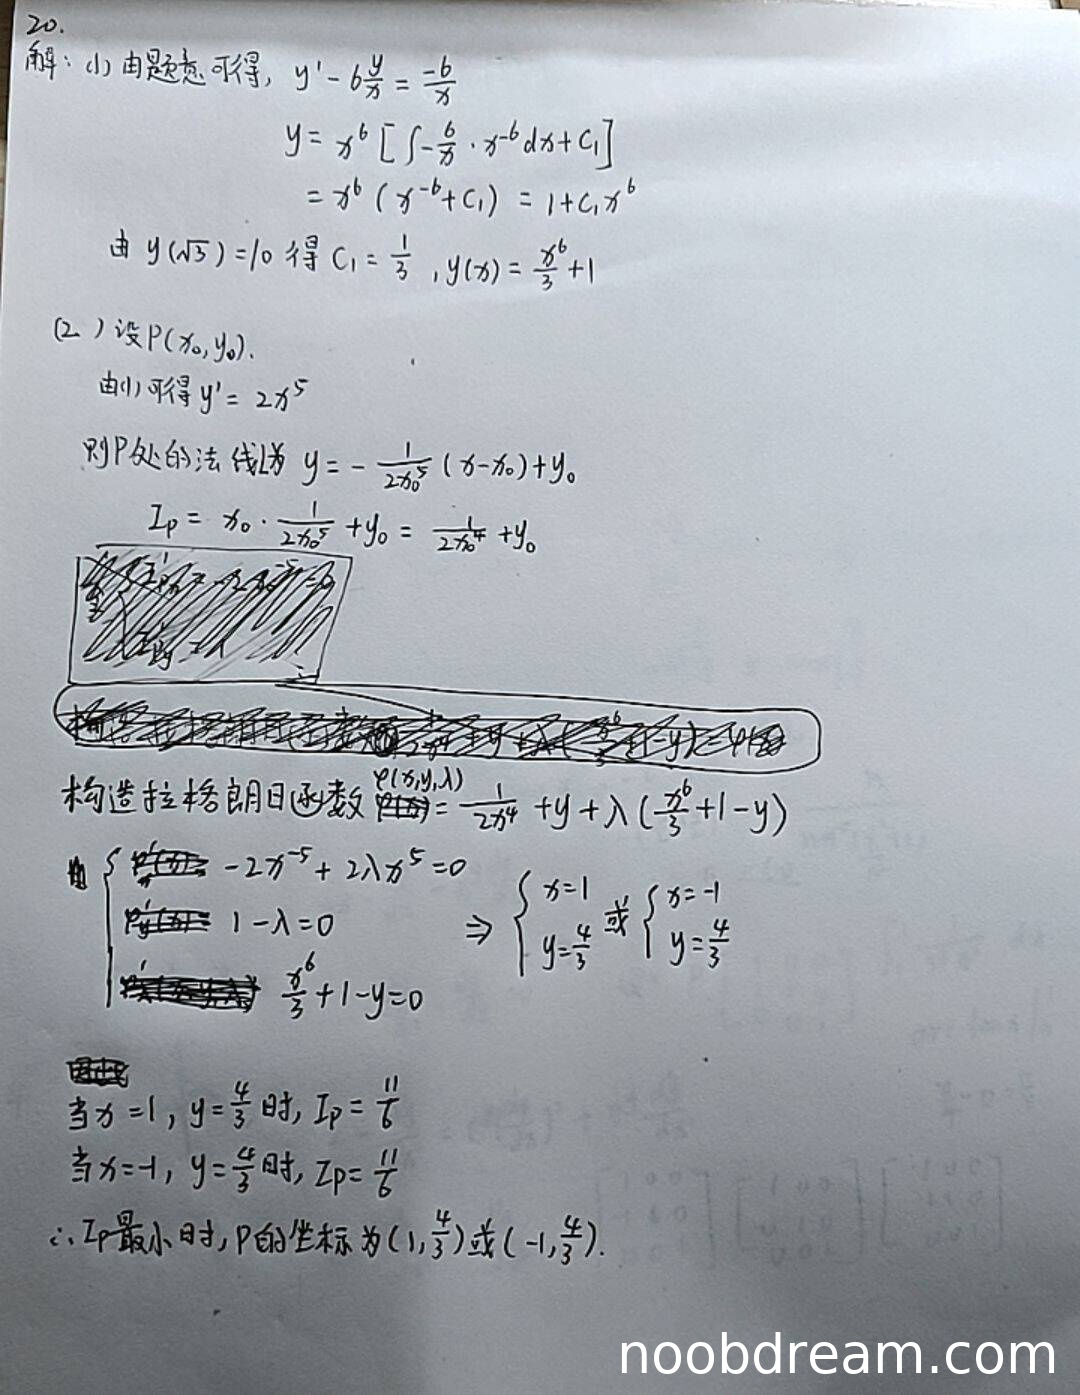 20.
解: (1) 由题意可得, y' - 6 y/x = -6/x
y = x^6 [∫ -6/x · x^-6 dx + C₁]
= x^6 (x^-6 + C₁) = 1 + C₁x^6
由 y(√3) = 10 得 C₁ = 1/3, y(x) = x^6/3 + 1
(2) 设P(x₀, y₀).
由(1)可得 y' = 2x^5
则P处的法线为 y = - 1/(2x₀^5) (x - x₀) + y₀
Ip = x₀ · 1/(2x₀^5) + y₀ = 1/(2x₀^4) + y₀
构造拉格朗日函数 φ(x,y,λ) = 1/(2x^4) + y + λ(x^6/3 + 1 - y)
{ -2x^-5 + 2λx^5 = 0
1 - λ = 0 ⇒ { x=1 y=4/3 或 { x=-1 y=4/3
x^6/3 + 1 - y = 0
当 x = 1, y = 4/3 时, Ip = 11/6
当 x = -1, y = 4/3 时, Ip = 11/6
∴ Ip最小时, P的坐标为(1, 4/3)或(-1, 4/3).
noobdream.com